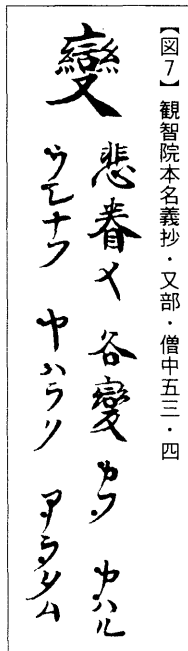 【図7】観智院本名義抄・又部・僧中五三・四
變
悲眷メ 谷變 カフ カハル
ヤハラク アラタム